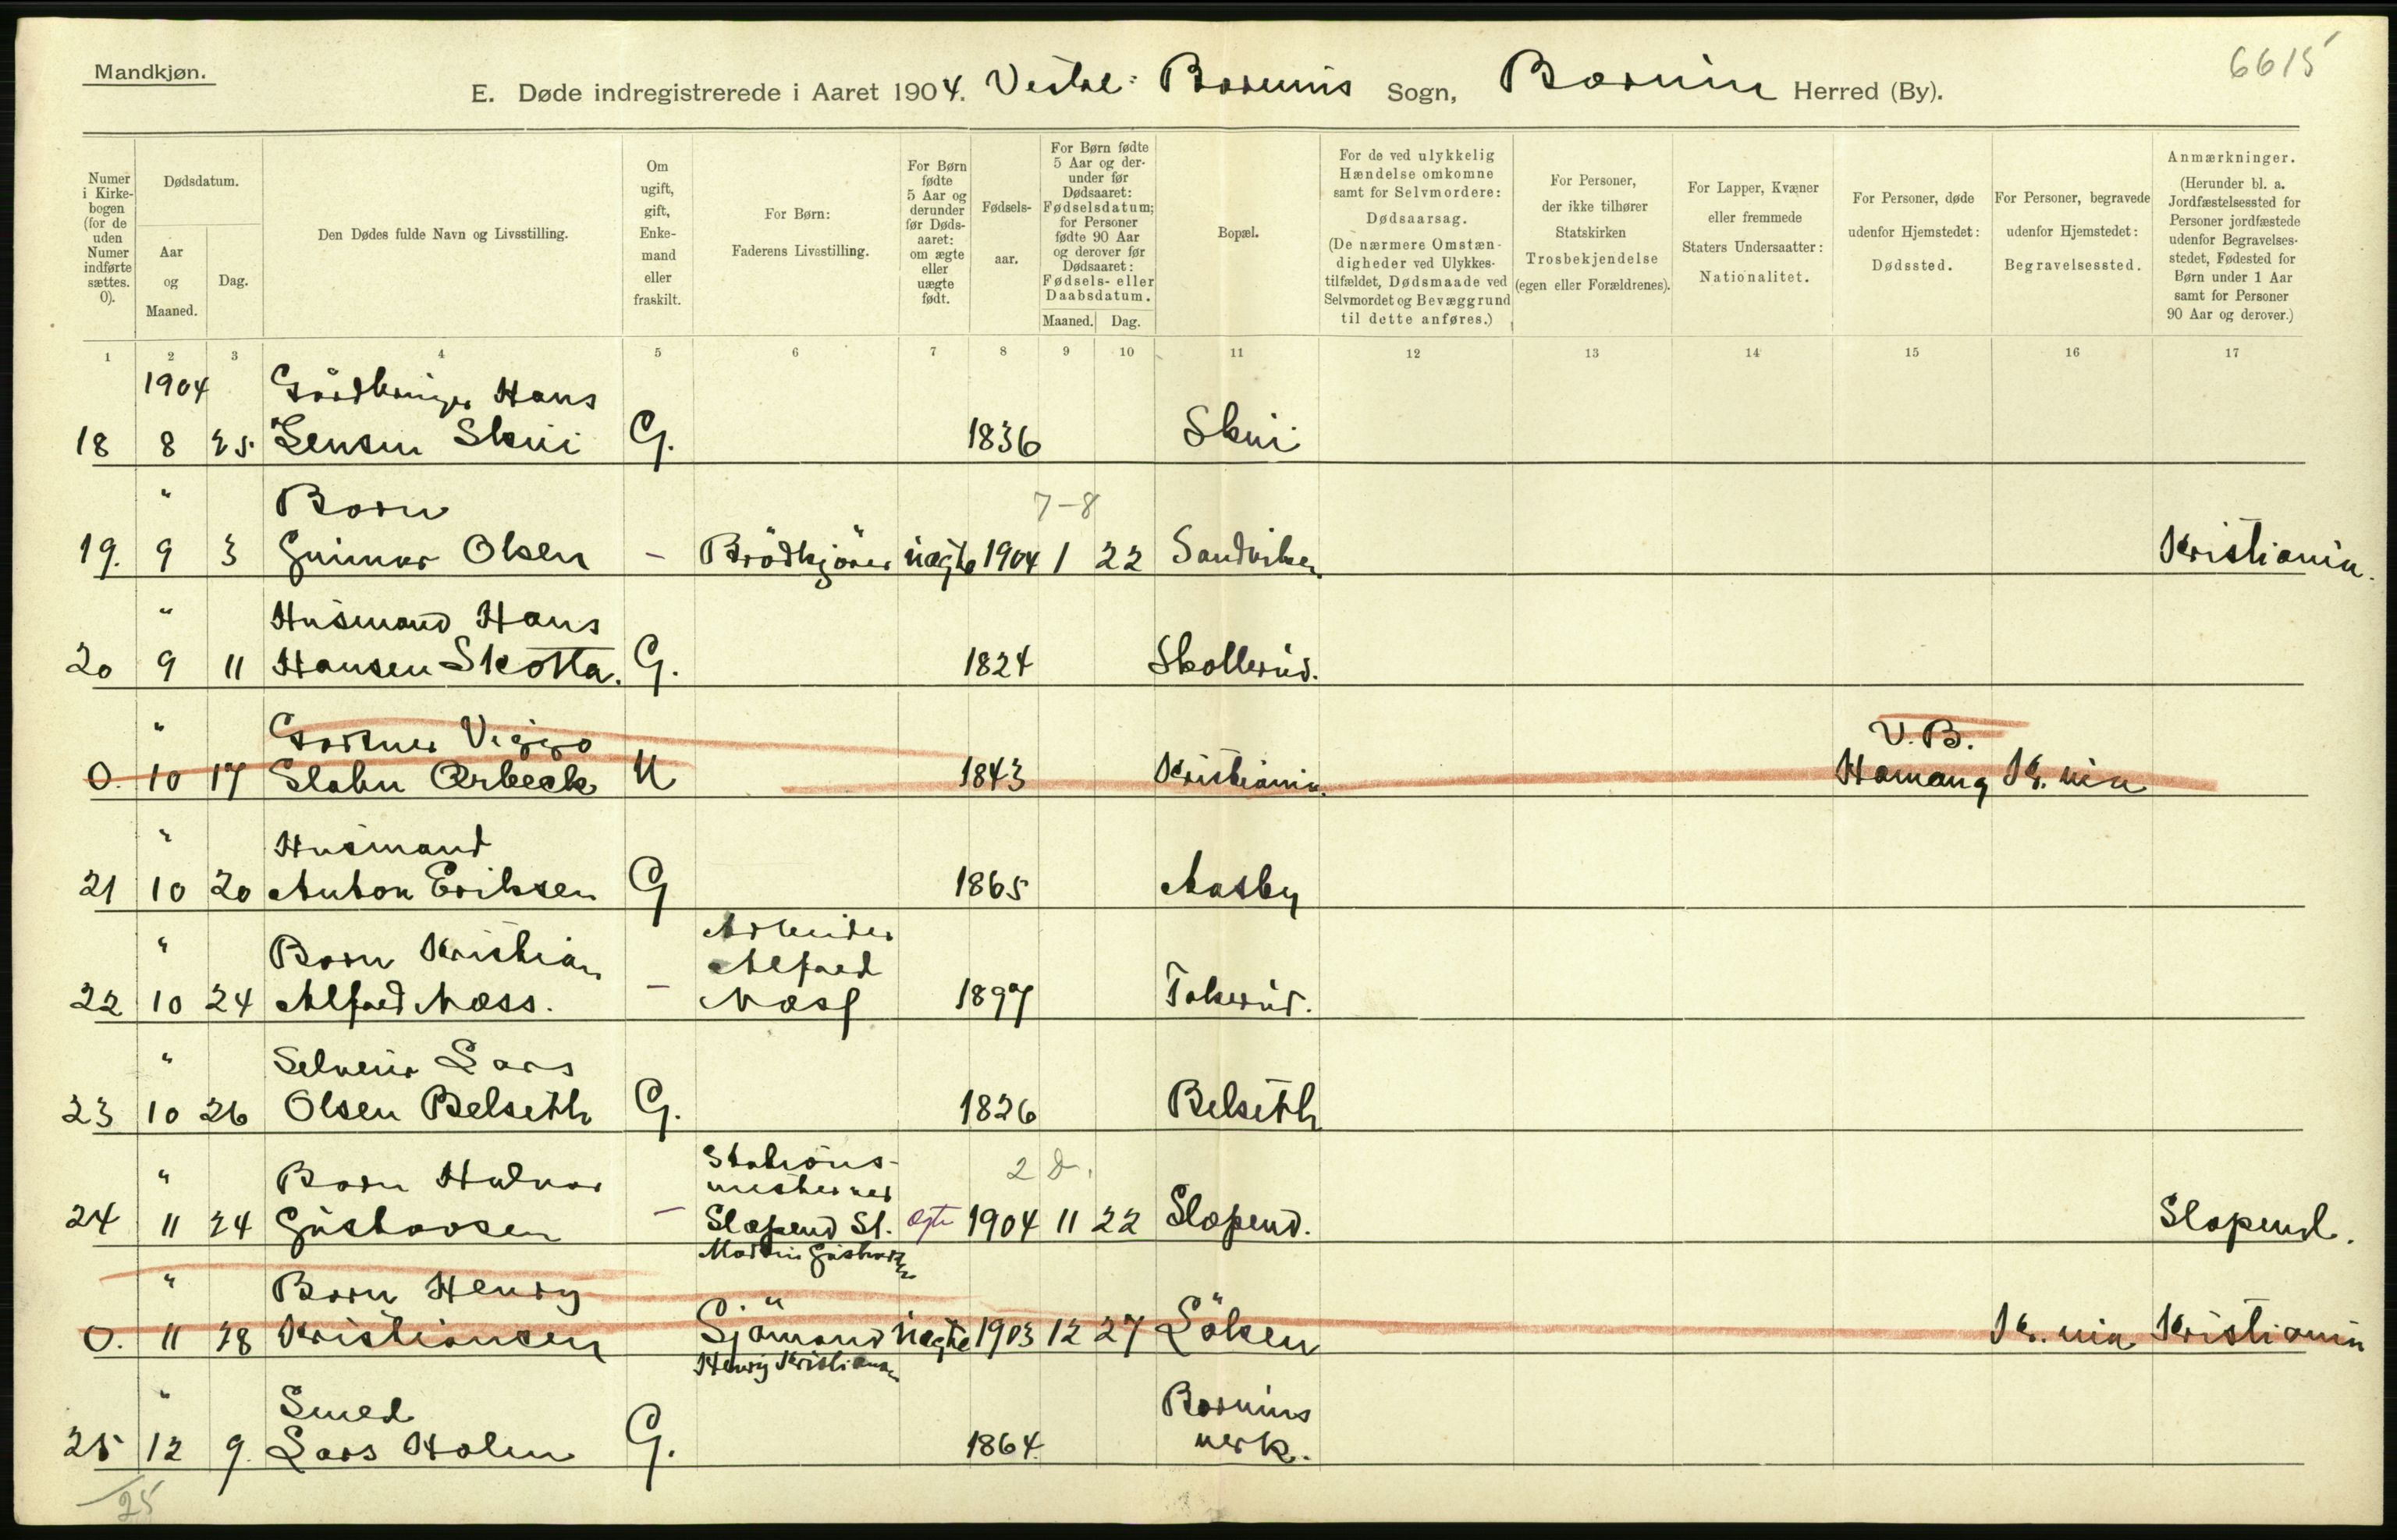 Mandkjøn.
6615
E. Døde indregistrerede i Aaret 1904. Vestre Bærums Sogn, Bærum Herred (By).
Numer i Kirkebogen (for de uden Numer indførte sættes. 0).
Dødsdatum.
Aar og Maaned.
Dag.
Den Dødes fulde Navn og Livsstilling.
Om ugift, gift, Enkemand eller fraskilt.
For Børn:
Faderens Livsstilling.
For Børn fødte 5 Aar og derunder før Dødsaaret: om ægte eller uægte født.
Fødselsaar.
For Børn fødte 5 Aar og derunder før Dødsaaret: Fødselsdatum; for Personer fødte 90 Aar og derover før Dødsaaret: Fødsels- eller Daabsdatum.
Maaned. Dag.
Bopæl.
For de ved ulykkelig Hændelse omkomne samt for Selvmordere:
Dødsaarsag.
(De nærmere Omstændigheder ved Ulykkestilfældet, Dødsmaade ved Selvmordet og Bevæggrund til dette anføres.)
For Personer, der ikke tilhører Statskirken
Trosbekjendelse
(egen eller Forældrenes).
For Lapper, Kvæner eller fremmede Staters Undersaatter:
Nationalitet.
For Personer, døde udenfor Hjemstedet:
Dødssted.
For Personer, begravede udenfor Hjemstedet:
Begravelsessted.
Anmærkninger.
(Herunder bl. a. Jordfæstelsessted for Personer jordfæstede udenfor Begravelsesstedet, Fødested for Børn under 1 Aar samt for Personer 90 Aar og derover.)
1 2 3 4 5 6 7 8 9 10 11 12 13 14 15 16 17
1904 Gårdbruger Hans
18 8 25 Jensen Skui G. 1836 Skui
" Barn 7-8
19. 9 3 Gunnar Olsen - Brödkjörer uægte 1904 1 22 Sandviken Kristiania.
" Husmand Hans
20 9 11 Hansen Skotta. G. 1824 Skollerud.
" Gartner Viggo V. B.
0. 10 17 Ørbeck U 1843 Kristiania. Hamang Kr.nia
" Husmand
21 10 20 Anton Eriksen G 1865 Aasby
" Barn Kristian Arbeider Alfred
22 10 24 Alfred Næss. - Næss 1897 Tokerud.
" Selveier Lars
23 10 26 Olsen Belseth G. 1826 Belseth
" Barn Halvor Stations- mester ved 2 d.
24 11 24 Gustavsen - Slæpend St. ægte 1904 11 22 Slæpend. Slæpend.
Martin Gustavsen
" Barn Henry
0. 11 28 Kristiansen Sjömand uægte 1903 12 27 Löken Kr.nia Kristiania
Henry Kristiansen
" Smed Bærums
25 12 9. Lars Holm G. 1864. verk.
25